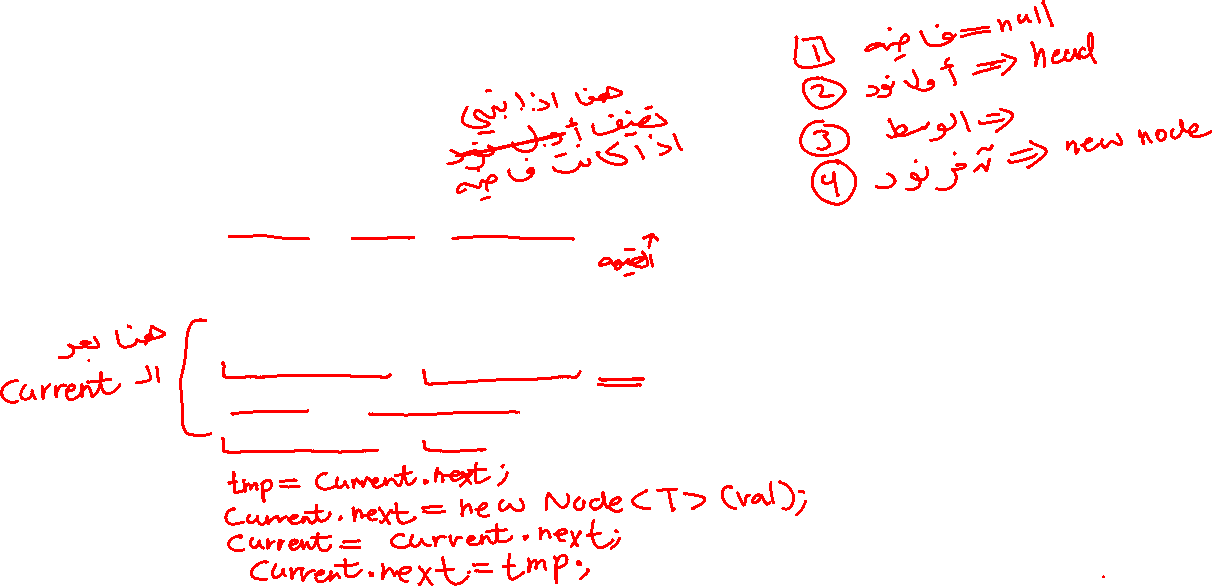 1 فاضيه == null
2 أول نود => head
3 الوسط =>
4 آخر نود => new node
هنا اذا بتي
تضيف أول نود
اذا كانت فاضيه
القيمه
هنا بعد
الـ Current
tmp = Current.next;
Current.next = new Node<T> (val);
Current = current.next;
Current.next = tmp;